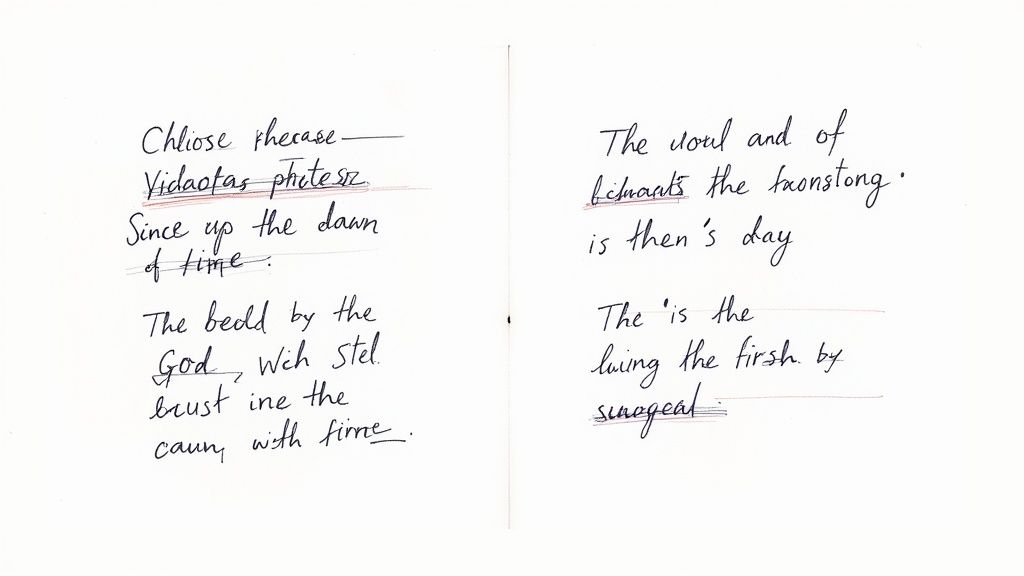 Chliose rhecase
Vidaotas phtesz
Since up the dawn
of time.
The bedd by the
God, Wch Stel.
brust ine the
caun, with firme.
The and of
the fxonstong.
is then's day
The 'is the
luiing the firsh. by